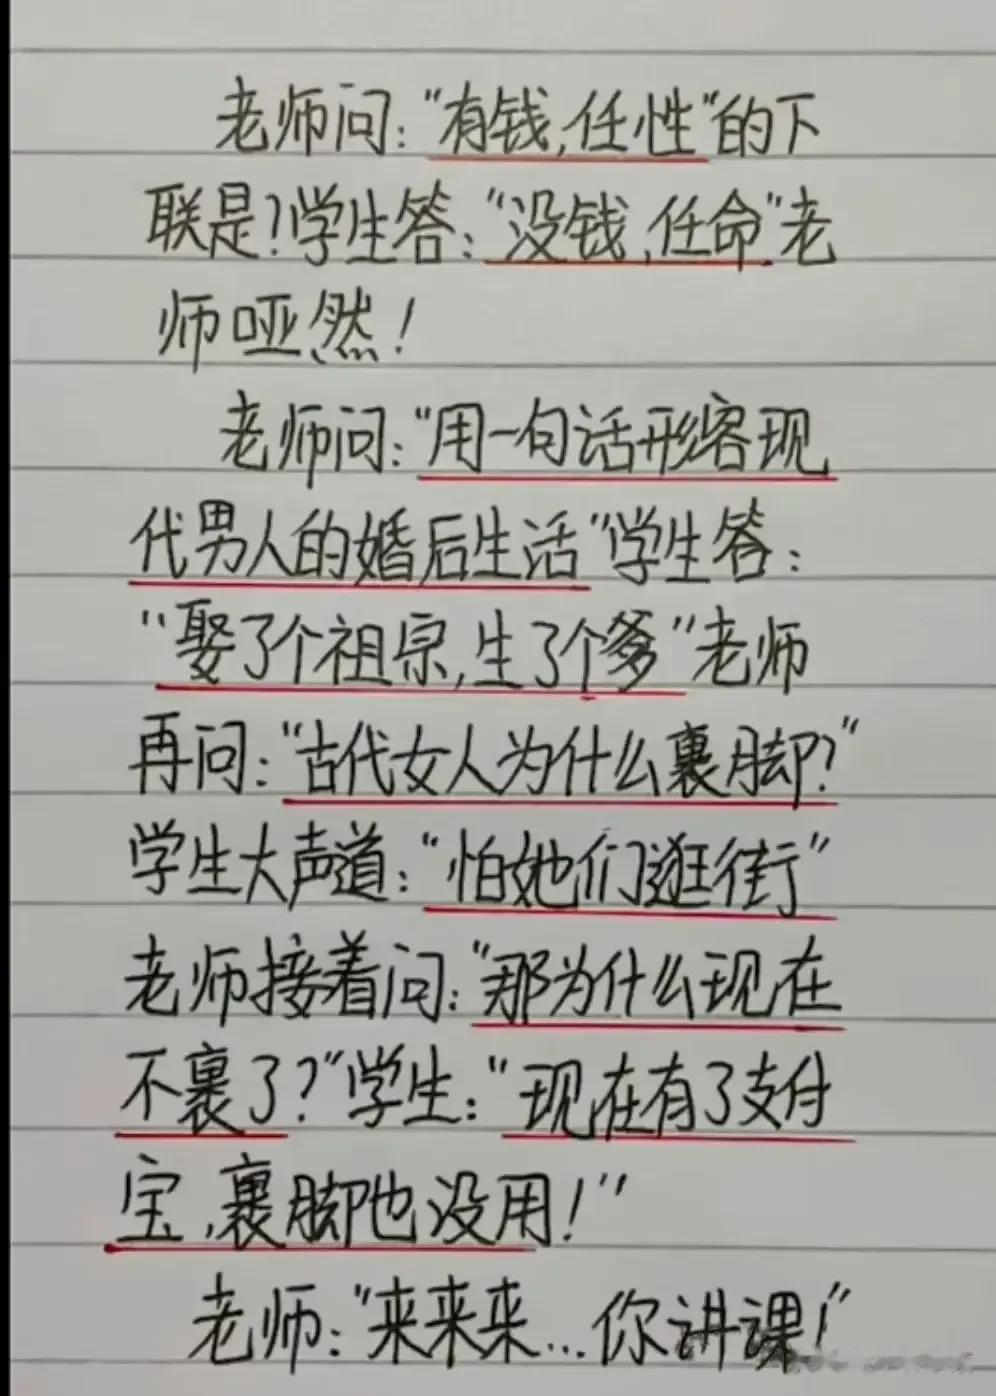 老师问:“有钱,任性”的下
联是?学生答:“没钱,任命”老
师哑然!
老师问:“用一句话形容现
代男人的婚后生活”学生答:
“娶了个祖宗,生了个爹”老师
再问:“古代女人为什么裹脚?”
学生大声道:“怕她们逛街”
老师接着问:“那为什么现在
不裹了?”学生:“现在有了支付
宝,裹脚也没用!”
老师:“来来来...你讲课!”